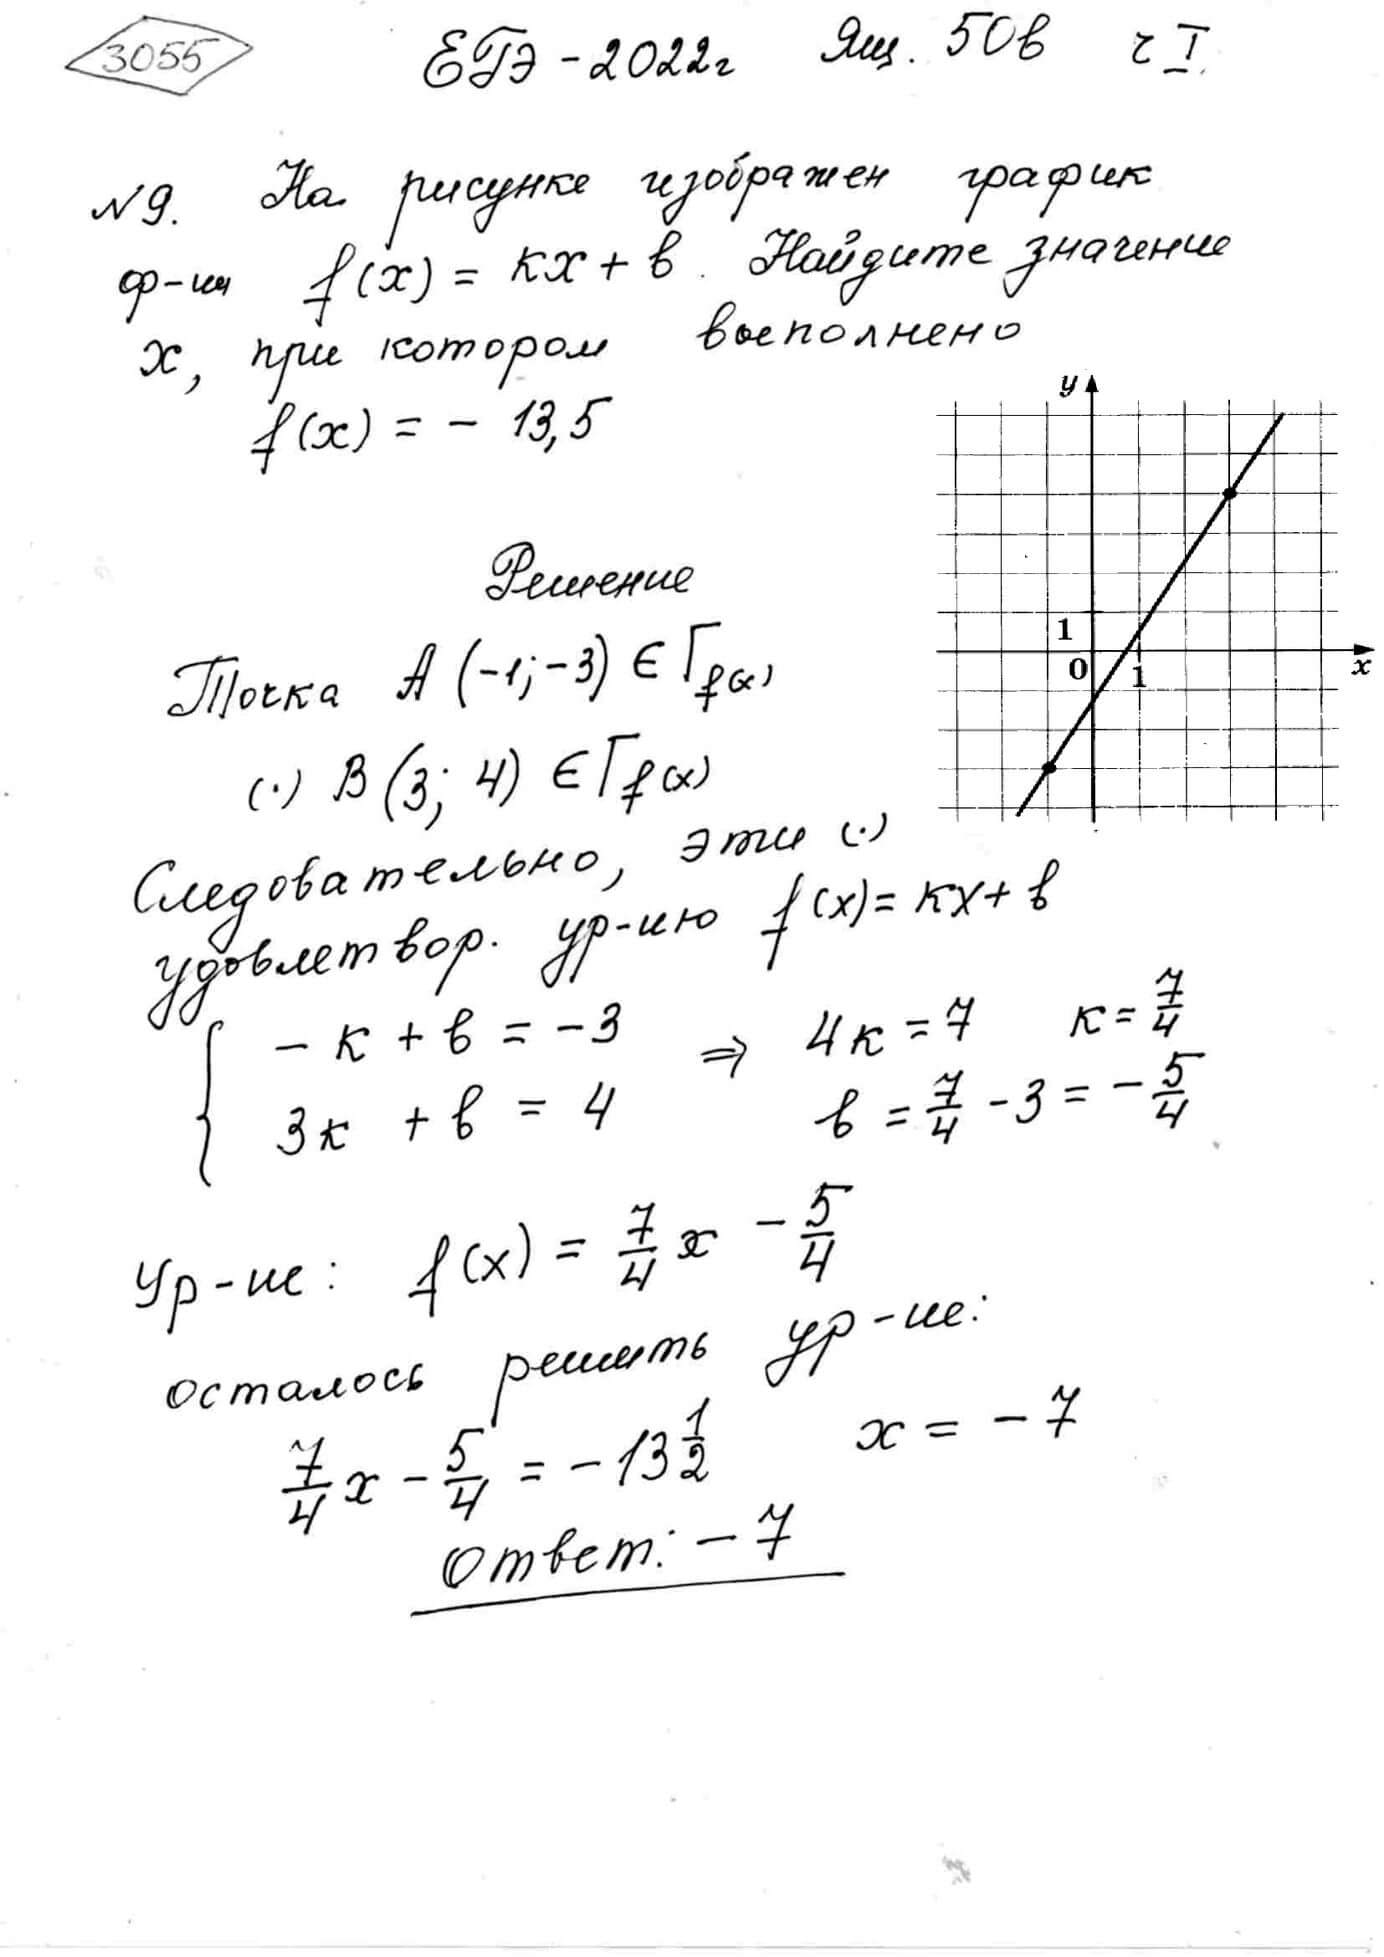 3055 ЕГЭ-2022г Ящ. 50в ч I
№9. На рисунке изображен график
ф-ии f(x) = kx + b. Найдите значение
x, при котором выполнено
f(x) = - 13,5
y
1
0
1
x
Решение
Точка A (-1; -3) ∈ Г f(x)
(·) B (3; 4) ∈ Г f(x)
Следовательно, эти (·)
удовлетвор. ур-ию f(x) = kx + b
{ - k + b = -3 ⇒ 4k = 7 k = 7/4
3k + b = 4 b = 7/4 - 3 = - 5/4
Ур-ие: f(x) = 7/4 x - 5/4
осталось решить ур-ие:
7/4 x - 5/4 = - 13 1/2 x = - 7
Ответ: - 7